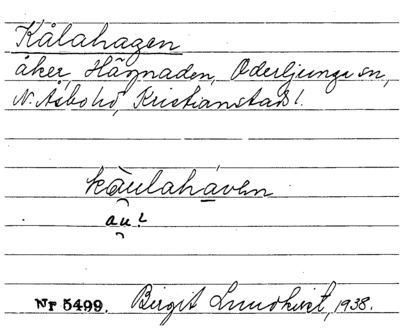 Kålahagen
åker, Hägnaden, Oderljunga sn,
N. Åsbo hd, Kristianstads l.
kàulaháven
au?
Nr 5499. Birgit Lundkvist, 1938.